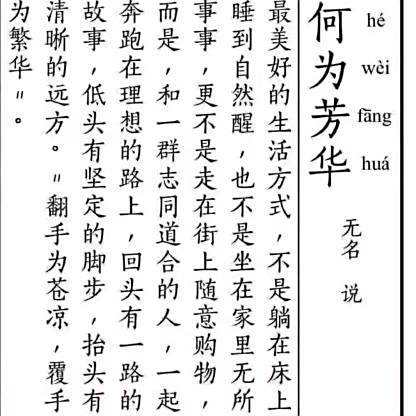 hé wèi fāng huá
何为芳华
无名 说
最美好的生活方式，不是躺在床上
睡到自然醒，也不是坐在家里无所
事事，更不是走在街上随意购物，
而是，和一群志同道合的人，一起
奔跑在理想的路上，回头有一路的
故事，低头有坚定的脚步，抬头有
清晰的远方。"翻手为苍凉，覆手
为繁华"。